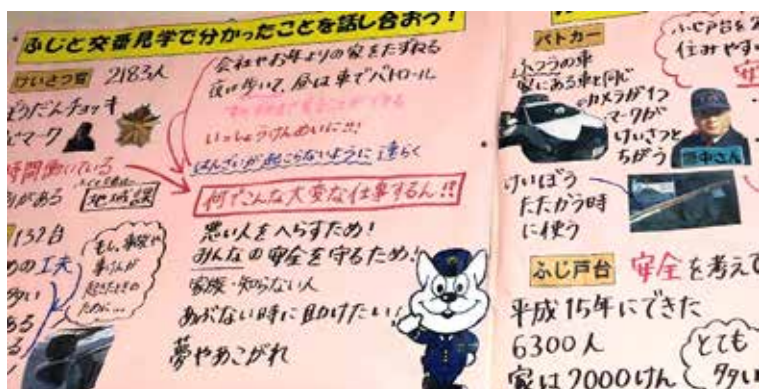 ふじと交番見学で分かったことを話し合おう!
けいさつ官 2183人
ぼうだんチョッキ
マーク
時間働いている
がある
地域課
137台
もし、事故や
事けんが
起きたときの
ために…
めの工夫
多い
ある
会社やお年よりの家をたずねる
夜は歩いて、昼は車でパトロール
いっしょうけんめいに!!
はんざいが起こらないように
何でこんな大変な仕事するん!!
悪い人をへらすため!
みんなの安全を守るため!
家族・知らない人
あぶない時に助けたい!
夢やあこがれ
パトカー
ふつうの車
家にある車と同じ
カメラが1つ
マークが
けいさつと
ちがう
けいぼう
たたかう時
に使う
ふじ戸台を
住みやす
田中さん
ふじ戸台 安全を考えて
平成15年にできた
6300人
家は2000けん
とても
多い